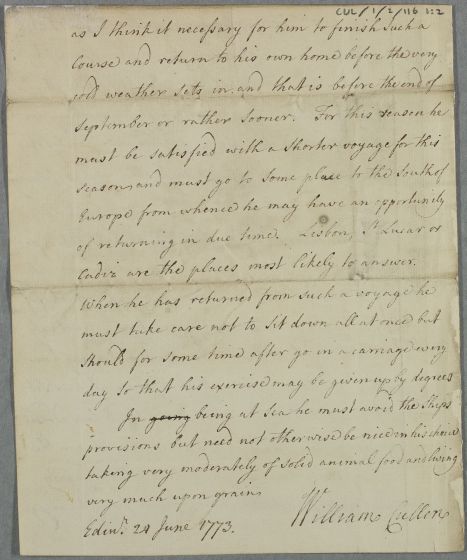 CUL/1/2/116 1:2
as I think it necessary for him to finish such a
Course and return to his own home before the very
cold weather sets in and that is before the end of
September or rather sooner. For this reason he
must be satisfied with a shorter voyage for this
season and must go to some place to the South of
Europe from whence he may have an opportunity
of returning in due time. Lisbon, St Lucar or
Cadiz are the places most likely to answer.
When he has returned from such a voyage he
must take care not to sit down all at once but
should for some time after go in a carriage every
day so that his exercise may be given up by degrees
In going being at Sea he must avoid the Ships
provisions but need not otherwise be nice in his choice
taking very moderately of solid animal food and living
very much upon grains
Edinr. 24 June 1773. William Cullen